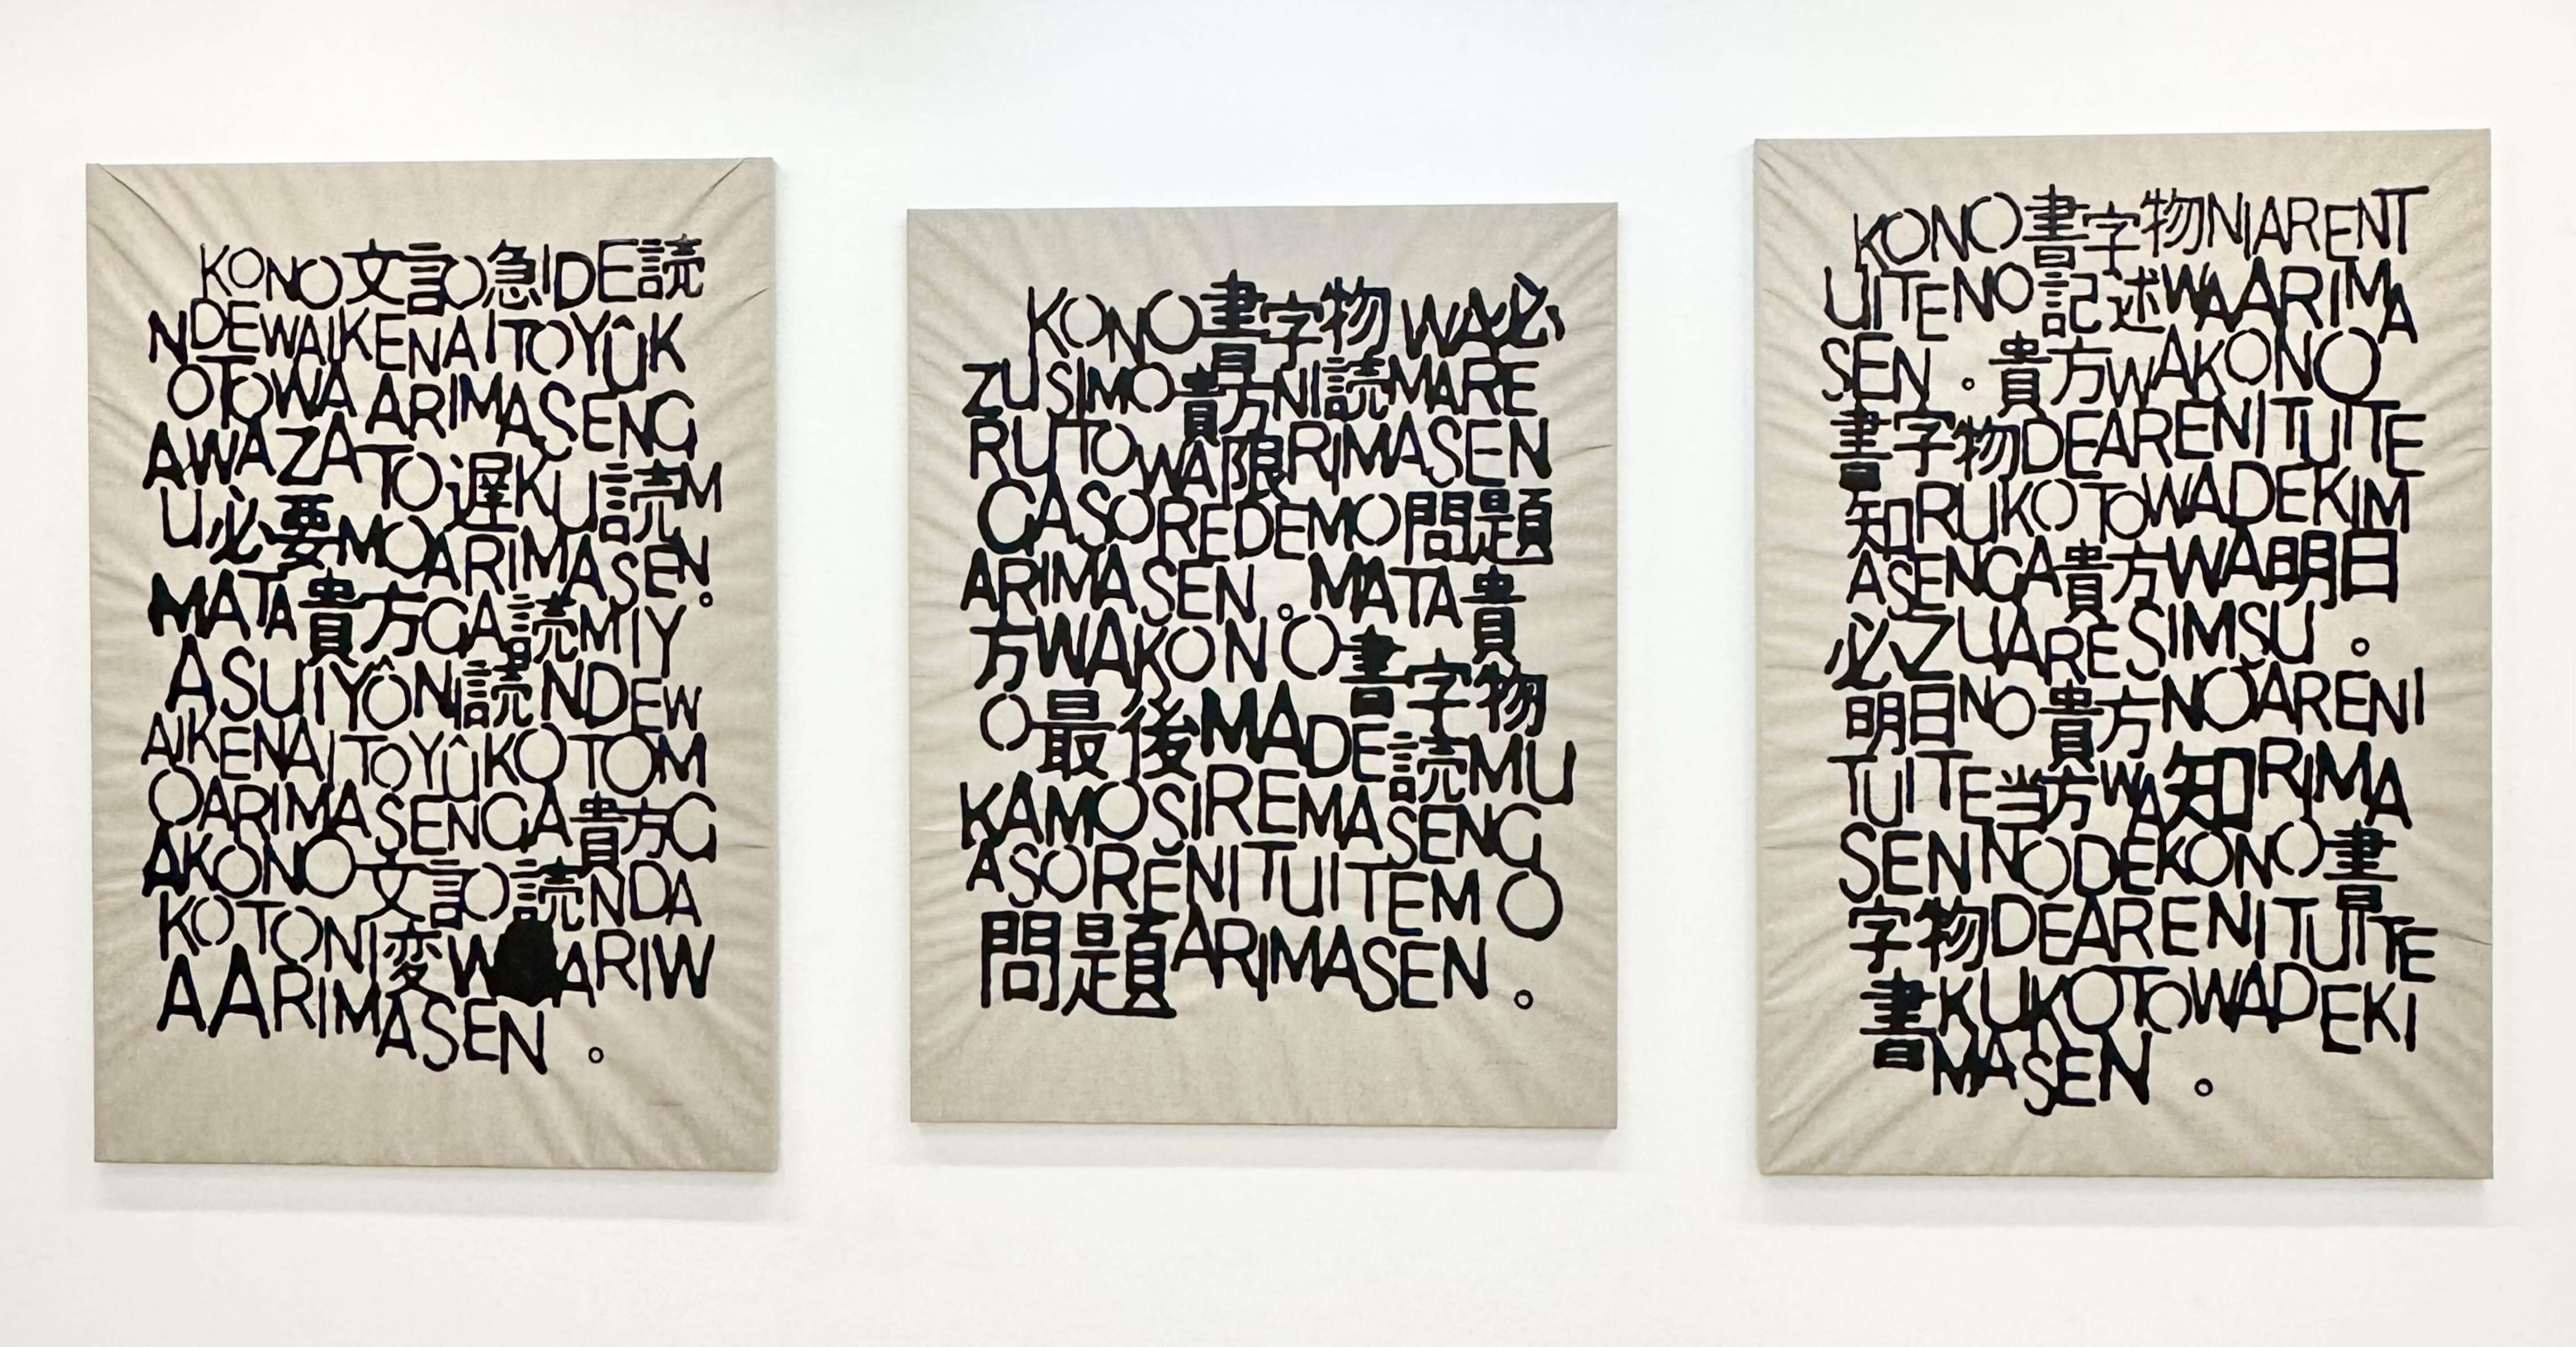 KONO文言O急IDE読
NDEWAIKENAITOYÛK
OTOWAARIMASENG
AWAZATO遅KU読M
U必要MOARIMASEN。
MATA貴方GA読MIY
ASUIYÔNI読NDEW
AIKENAITOYÛKOTOM
OARIMASENGA貴方G
AKONO文言O読NDA
KOTONI変W ARIW
AARIMASEN。
KONO書字物WA必
ZUSIMO貴方NI読MARE
RUTOWA限RIMASEN
GASOREDEMO問題
ARIMASEN。MATA貴
方WAKONO書字物
O最後MADE読MU
KAMOSIREMASENG
ASORENITUITEMO
問題ARIMASEN。
KONO書字物NIARENT
UITENO記述WAARIMA
SEN。貴方WAKONO
書字物DEARENITUITE
知RUKOTOWADEKIM
ASENGA貴方WA明日
必ZUARESIMSU。
明日NO貴方NOARENI
TUITE当方WA知RIMA
SENNODEKONO書
字物DEARENITUITE
書KUKOTOWADEKI
MASEN。